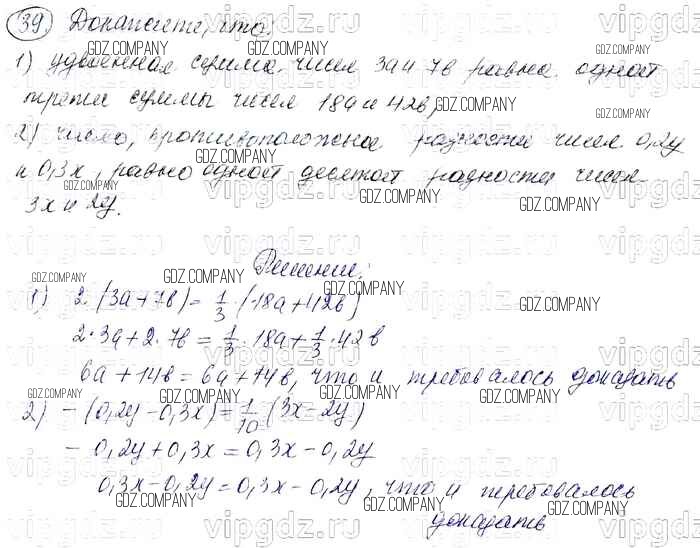 39. Докажите, что:
1) удвоенная сумма чисел 3a и 7в равна одной
трети суммы чисел 18a и 42в;
2) число, противоположное разности чисел 0,2y
и 0,3x, равно одной десятой разности чисел
3x и 2y.
Решение:
1) 2·(3a+7в)=1/3·(18a+42в)
2·3a+2·7в=1/3·18a+1/3·42в
6a+14в=6a+14в, что и требовалось доказать
2) -(0,2y-0,3x)=1/10(3x-2y)
-0,2y+0,3x=0,3x-0,2y
0,3x-0,2y=0,3x-0,2y, что и требовалось
доказать